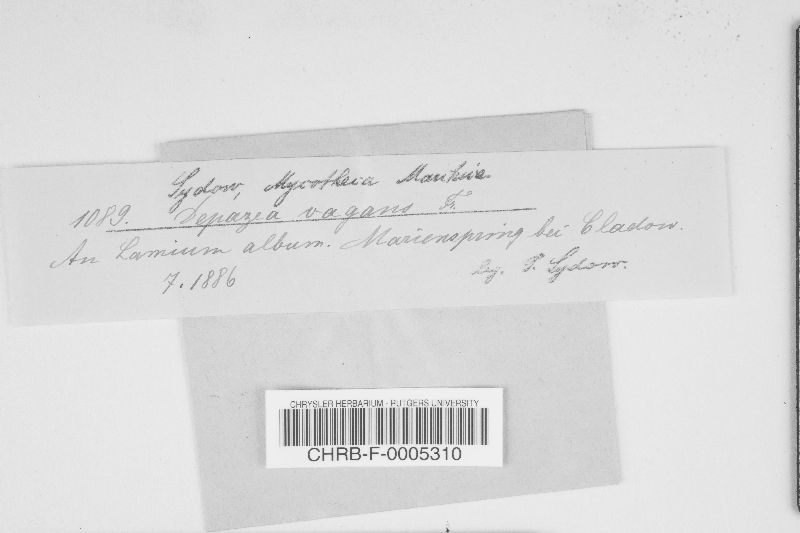 Sydow, Mycotheca Marchica.
1089. Depazea vagans Fr.
An Lamium album. Marienspring bei Cladow.
7. 1886
leg. P. Sydow.
CHRYSLER HERBARIUM - RUTGERS UNIVERSITY
CHRB-F-0005310